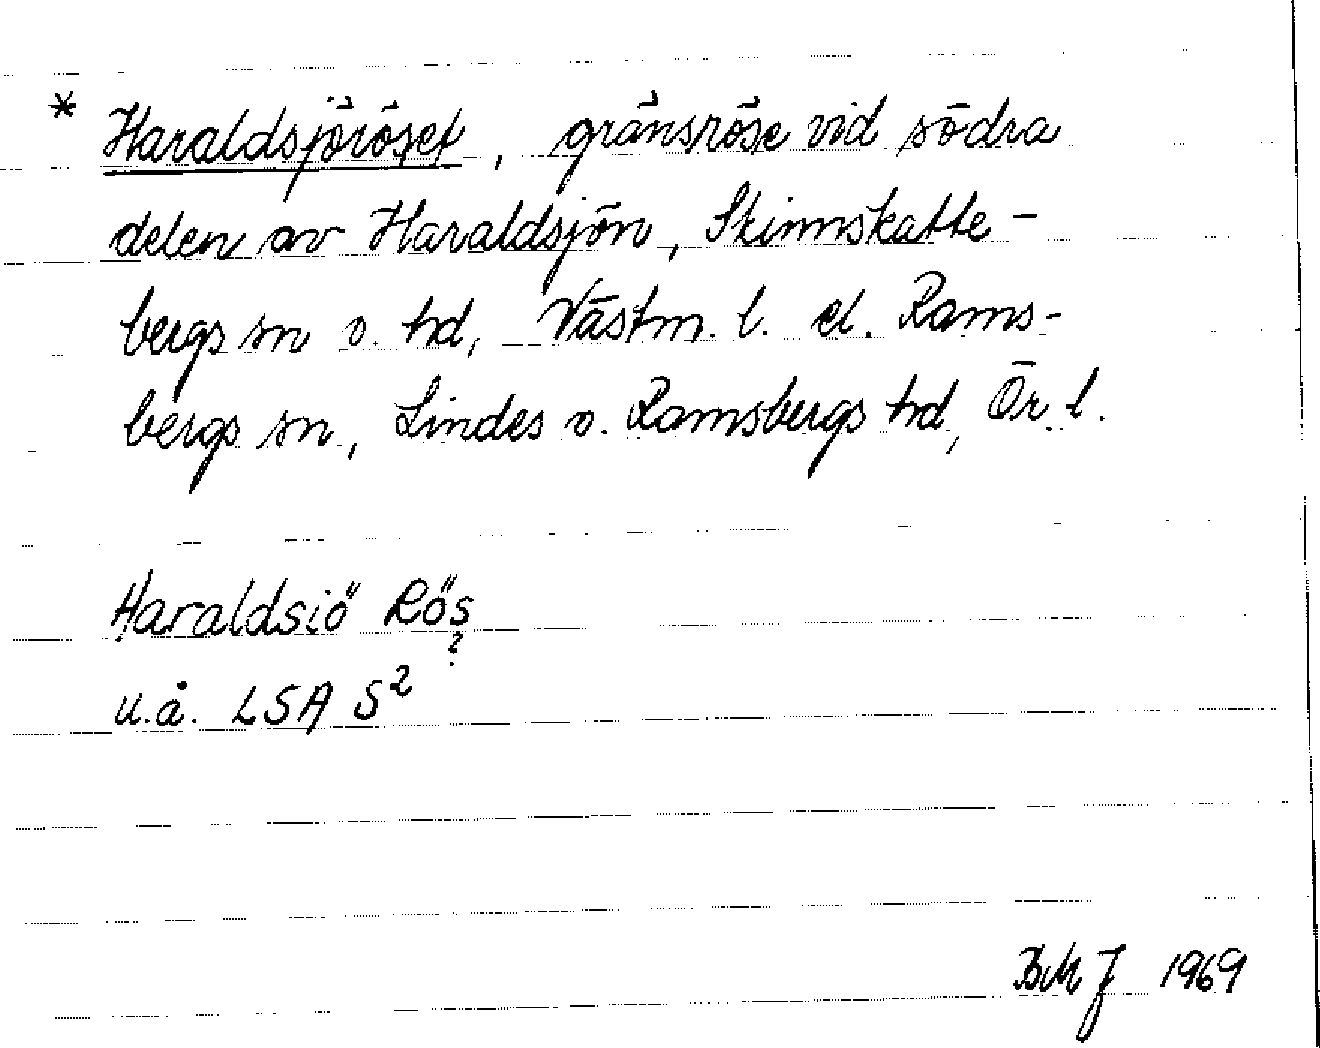 * Haraldsjöröset, gränsröse vid södra
delen av Haraldsjön, Skinnskatte-
bergs sn o. hd, Västm. l. el. Rams-
bergs sn, Lindes o. Ramsbergs hd, Ör. l.
Haraldsiö Rös
?
u.å. LSA S²
BMJ 1969